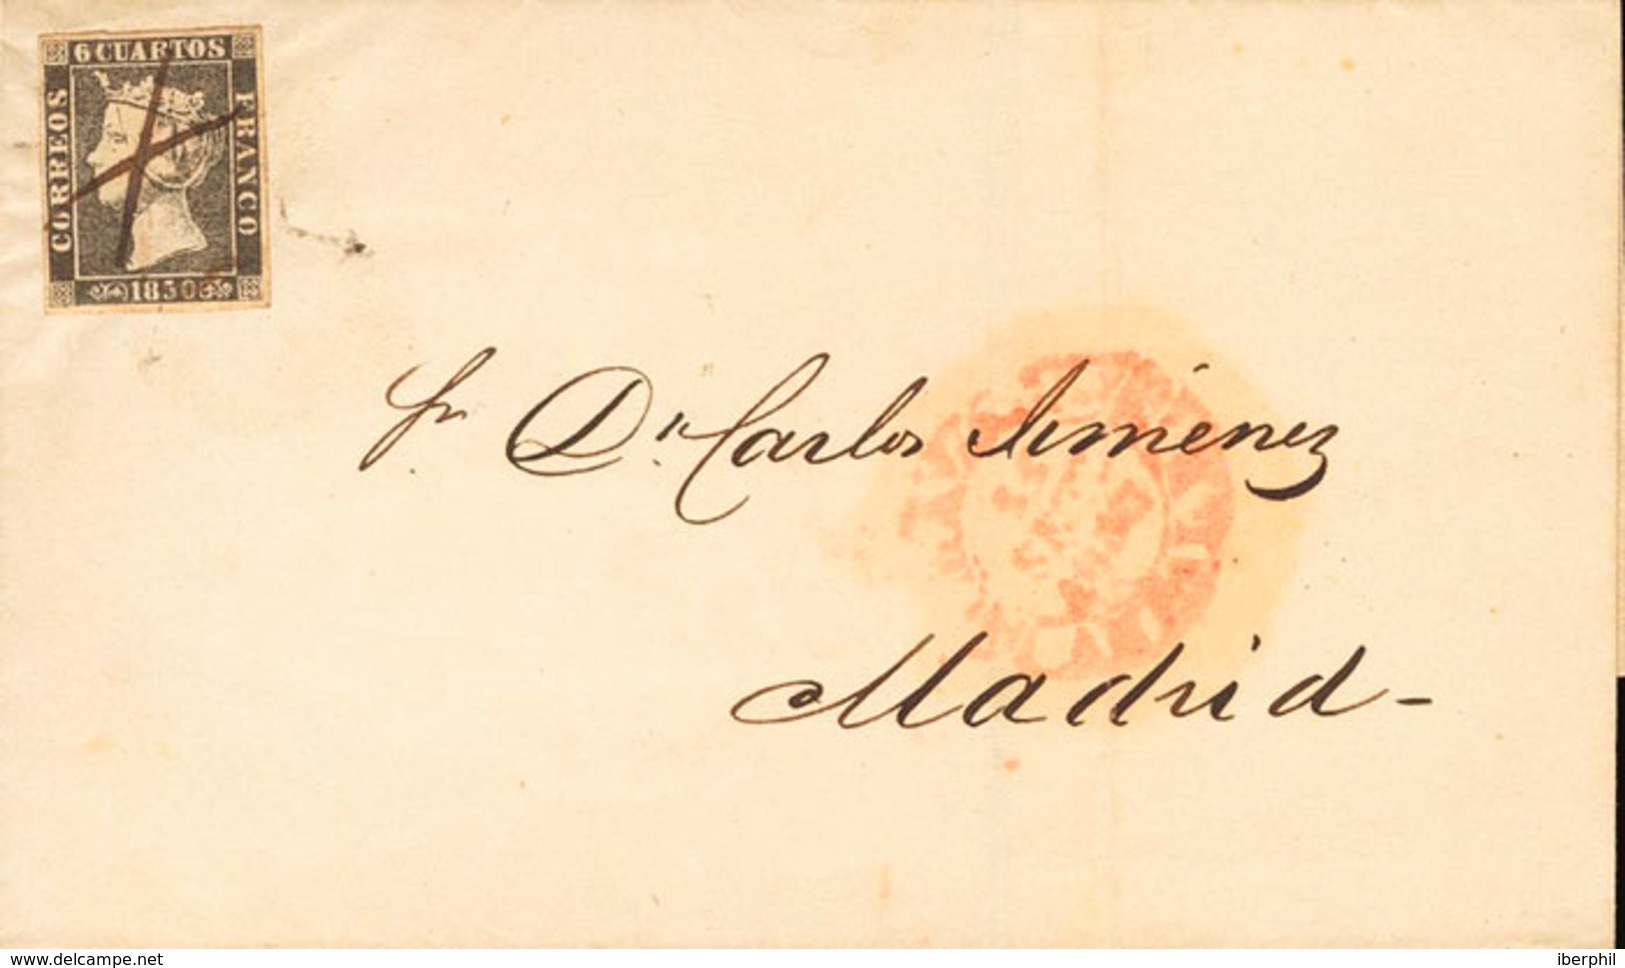 6 CUARTOS
CORREOS
FRANCO
1850
Sr. Dn. Carlos Jiménez
Madrid-
www.delcampe.net
iberphil